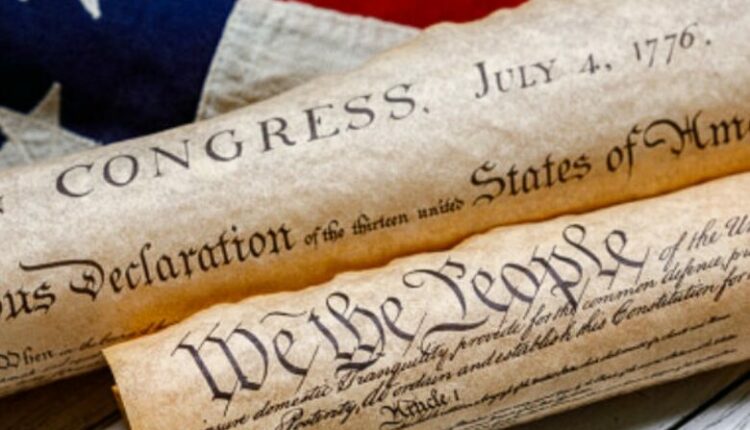 CONGRESS. JULY 4, 1776.
ous Declaration of the thirteen united States of Ame
When in the
We the People of the Un
sure domestic Tranquility, provide for the common defence, pr
Posterity, do ordain and establish this Constitution for
Article I